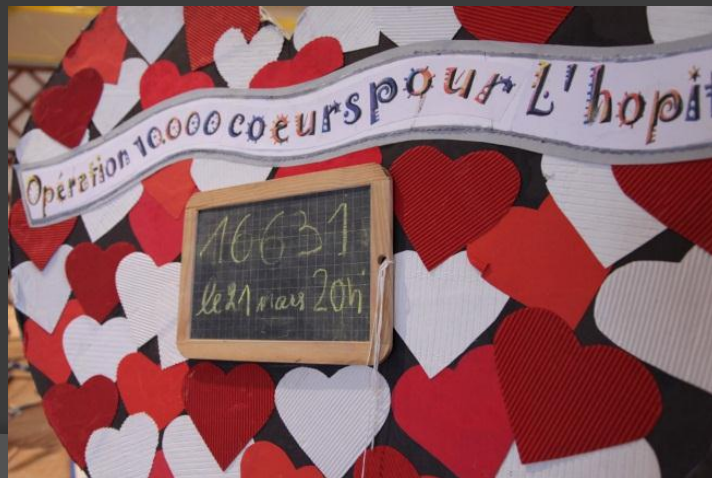 Opération 10.000 coeurs pour L'hopit
16631
le 21 mars 20h